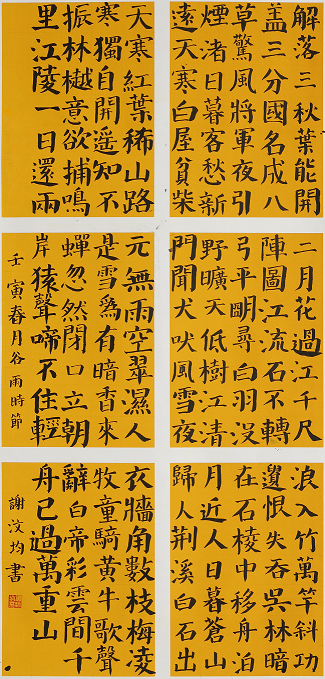 解落三秋葉能開二月花過江千尺浪入竹萬竿斜功
盖三分國名成八陣圖江流石不轉遺恨失吞吳林暗
草驚風將軍夜引弓平明尋白羽没在石棱中移舟泊
煙渚日暮客愁新野曠天低樹江清月近人日暮蒼山
遠天寒白屋貧柴門聞犬吠風雪夜歸人荆溪白石出
天寒紅葉稀山路元無雨空翠濕人衣牆角數枝梅凌
寒獨自開遥知不是雪爲有暗香來牧童騎黄牛歌聲
振林樾意欲捕鳴蟬忽然閉口立朝辭白帝彩雲間千
里江陵一日還兩岸猿聲啼不住輕舟已過萬重山
壬寅春月谷雨時節謝汶均書